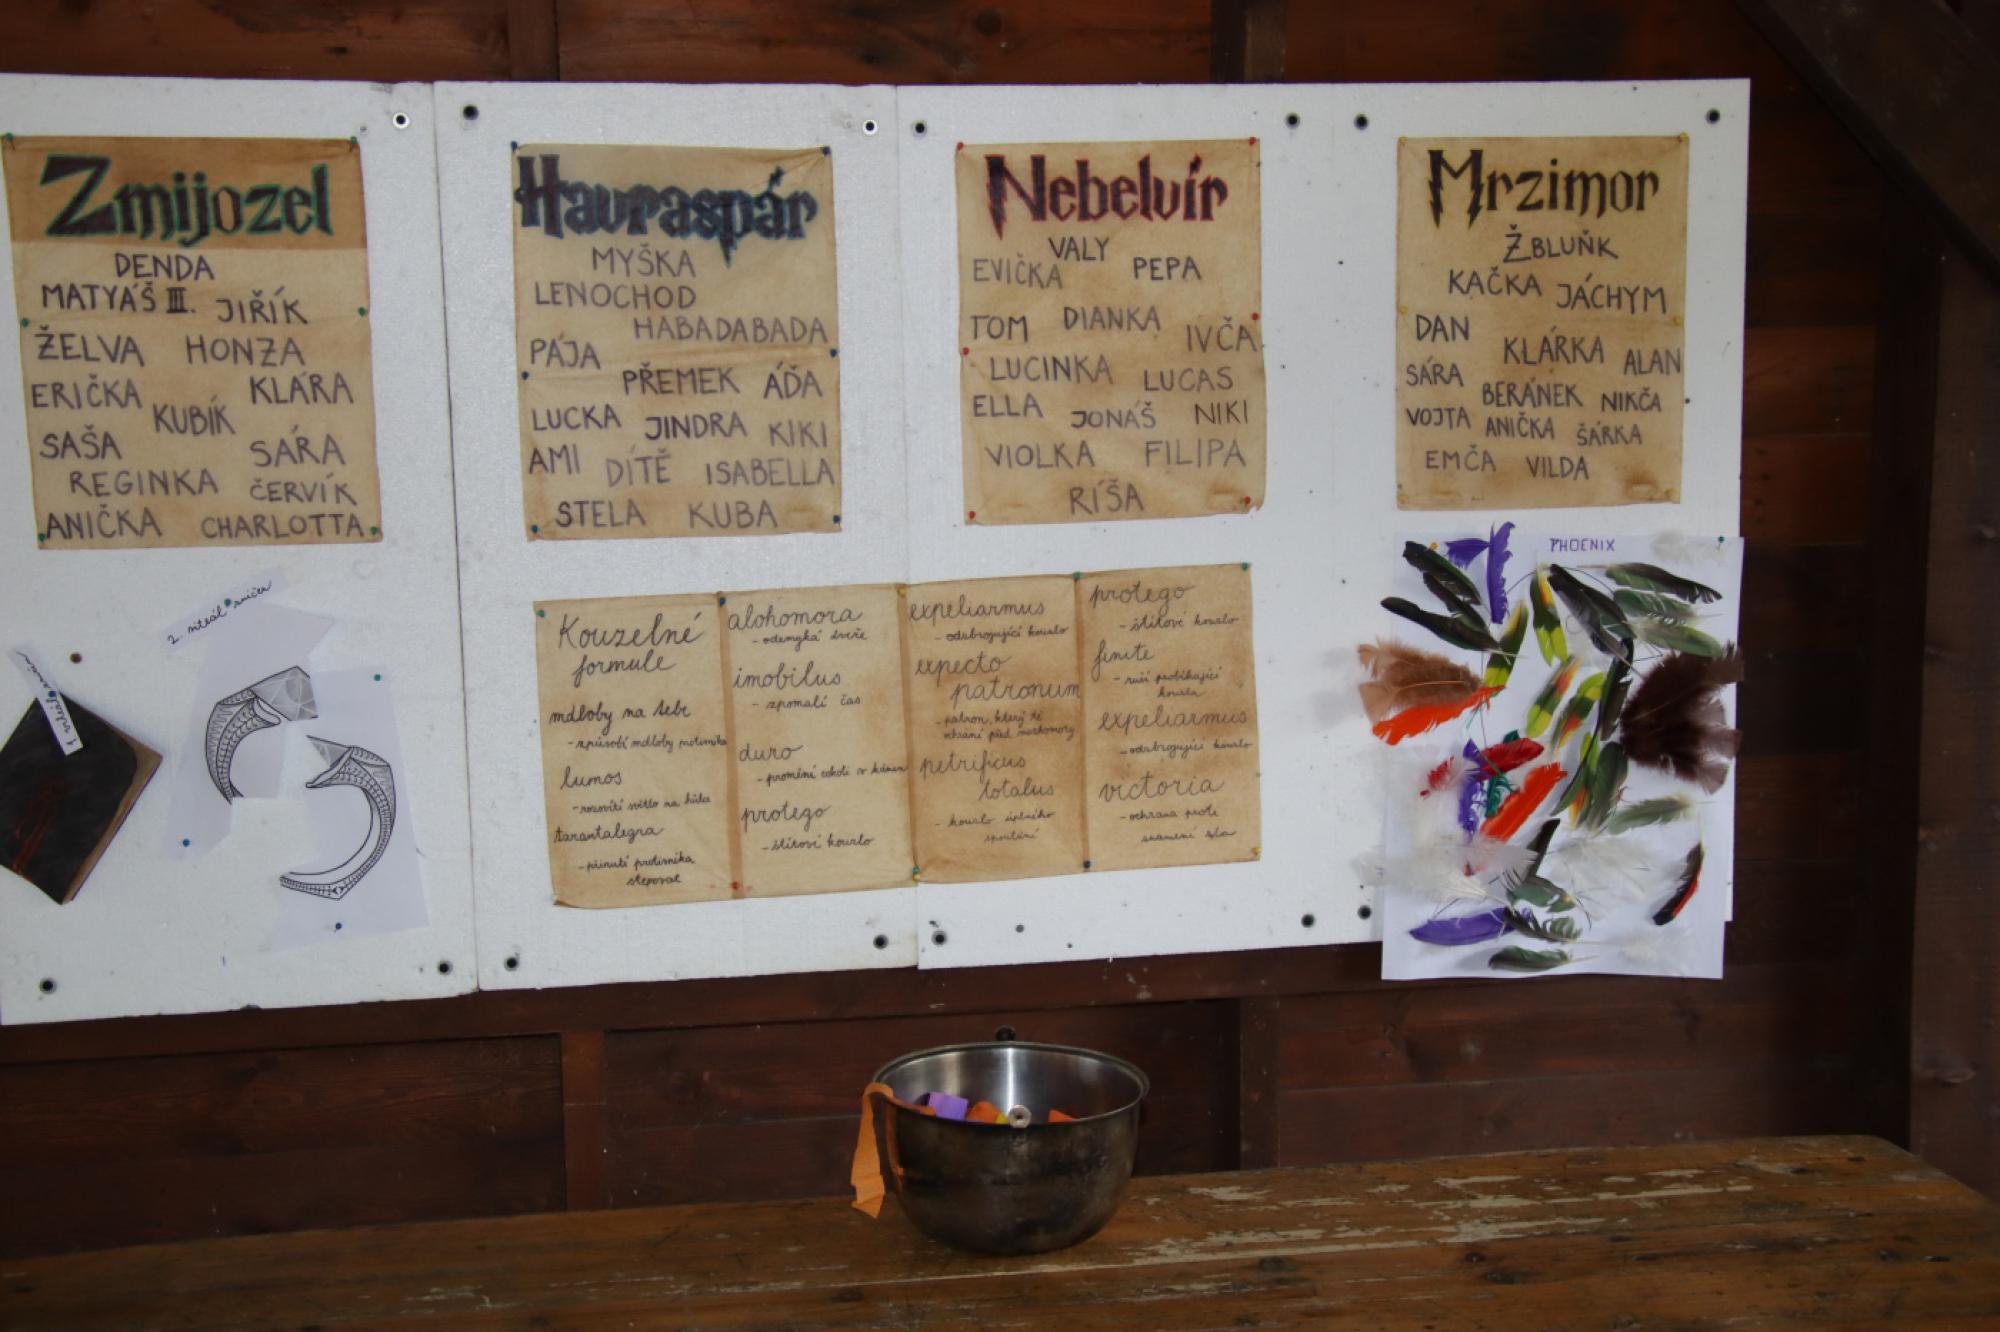 Zmijozel
DENDA
MATYÁŠ III. JIŘÍK
ŽELVA HONZA
ERIČKA KLÁRA
KUBÍK
SAŠA SÁRA
REGINKA ČERVÍK
ANIČKA CHARLOTTA
Havraspár
MYŠKA
LENOCHOD
HABADABADA
PÁJA
PŘEMEK ÁĎA
LUCKA JINDRA KIKI
AMI DÍTĚ ISABELLA
STELA KUBA
Nebelvír
VALY
EVIČKA PEPA
TOM DIANKA IVČA
LUCINKA LUCAS
ELLA JONÁŠ NIKI
VIOLKA FILIPA
RÍŠA
Mrzimor
ŽBLUŇK
KAČKA JÁCHYM
DAN
KLÁRKA ALAN
SÁRA BERÁNEK NIKČA
VOJTA ANIČKA ŠÁRKA
EMČA VILDA
2. viteál
Kouzelné
formule
mdloby na tebe
- způsobí mdloby protivníka
lumos
- rozsvítí světlo na hůlce
tarantalegra
- přinutí protivníka
stepovat
alohomora
- odemyká dveře
imobilus
- zpomalí čas
duro
- promění cokoli v kámen
protego
- štítové kouzlo
expeliarmus
- odzbrojující kouzlo
expecto
patronum
- patron, který tě
ochrání před mozkomory
petrificus
totalus
- kouzlo úplného
spoutání
protego
- štítové kouzlo
finite
- ruší probíhající
kouzla
expeliarmus
- odzbrojující kouzlo
victoria
- ochrana proti
znamení zla
PHOENIX